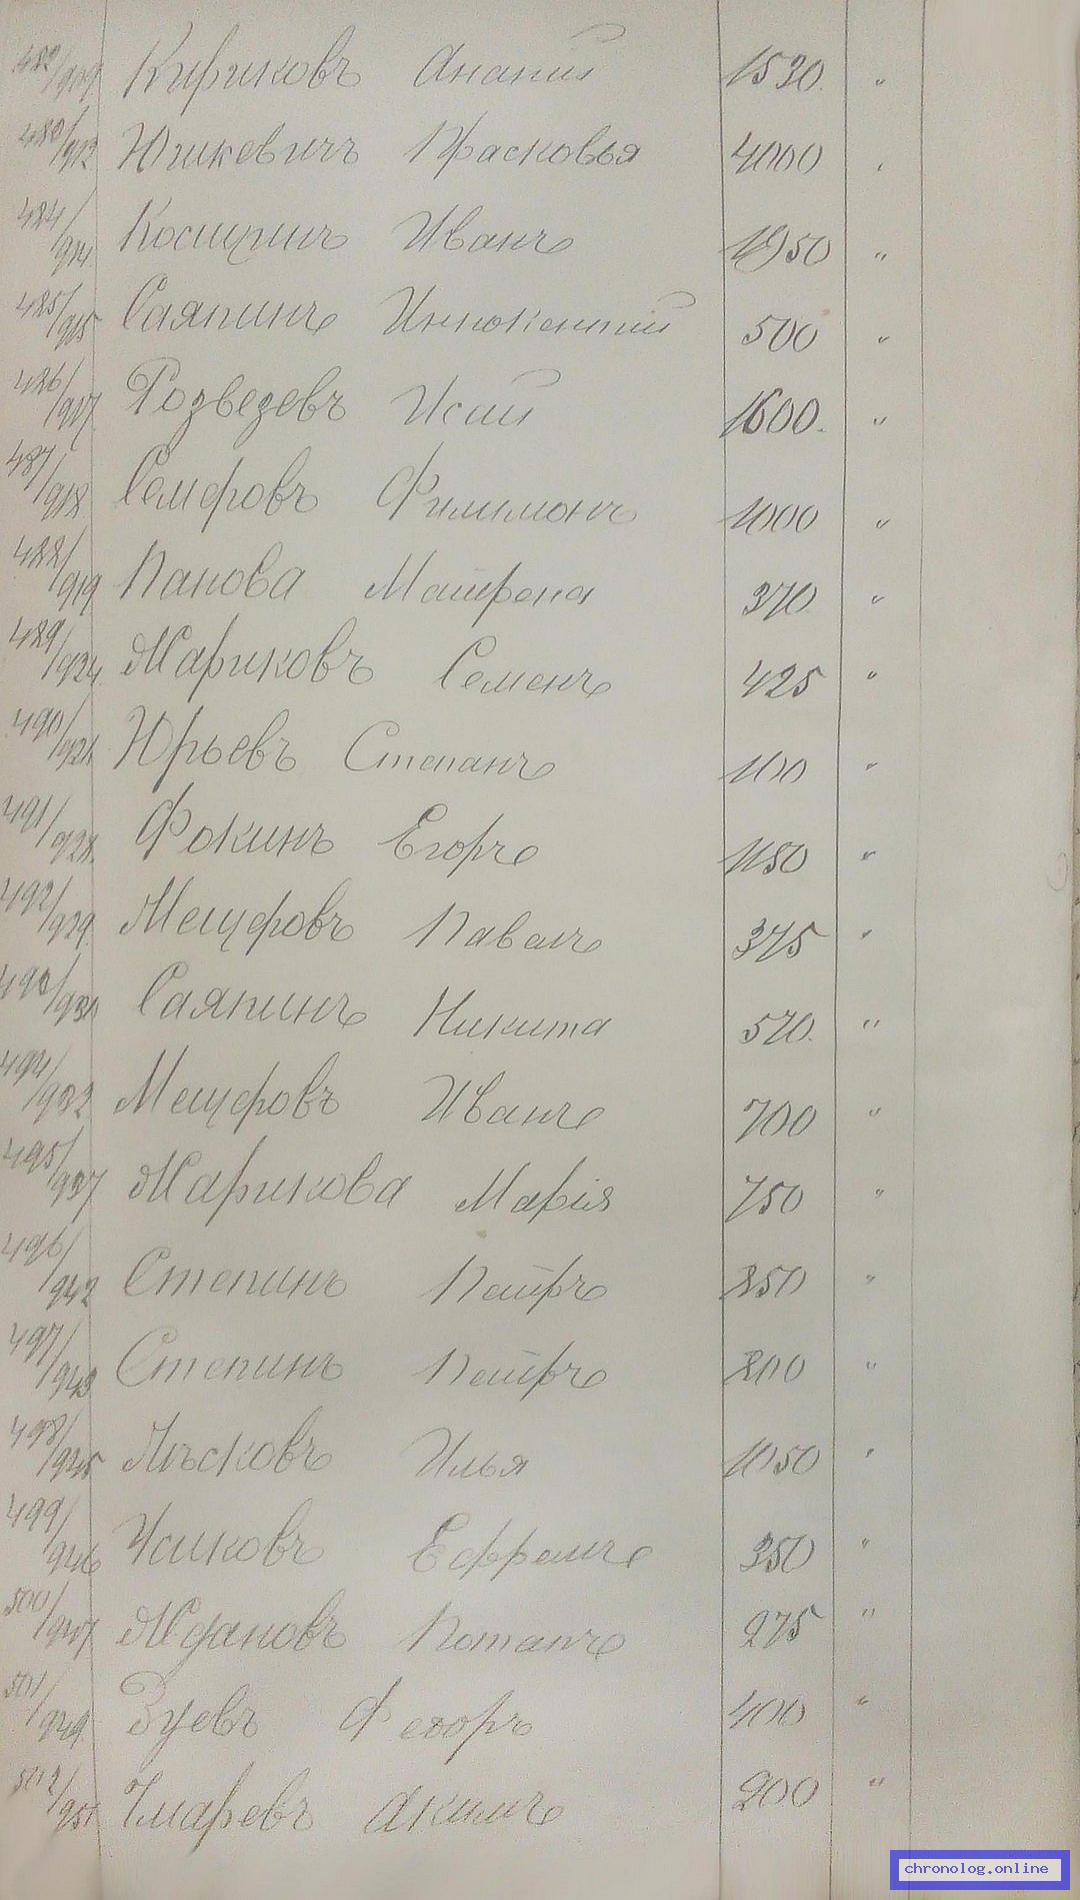 482/909 Кириковъ Ананий 1530. "
480/912 Юшкевичъ Прасковья 4000 "
484/914 Косицинъ Иванъ 1950 "
485/915 Саяпинъ Иннокентий 500 "
486/917 Розведевъ Исай 1600. "
487/918 Семеровъ Филимонъ 1000 "
488/919 Панова Матрена 370 "
489/924 Жариковъ Семенъ 425 "
490/928 Юрьевъ Степанъ 100 "
491/928 Фокинъ Егоръ 1150 "
492/929 Мещеровъ Павелъ 375 "
493/931 Саяпинъ Никита 570. "
494/932 Мещеровъ Иванъ 700 "
495/937 Жарикова Марія 750 "
496/942 Степинъ Петръ 850 "
497/943 Степинъ Петръ 800 "
498/945 Лъсковъ Илья 1050 "
499/946 Усиковъ Ефремъ 350 "
500/947 Ждановъ Потапъ 275 "
501/949 Зуевъ Федоръ 400 "
502/951 Акимъ 200 "
chronolog.online